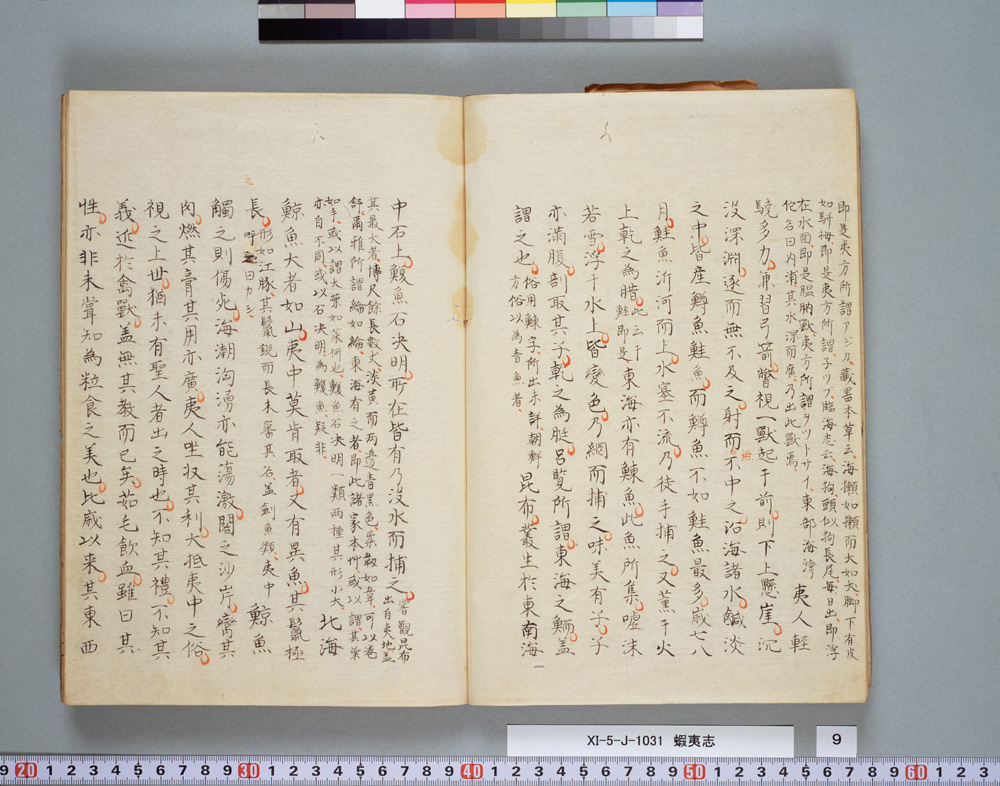 即是夷方所謂アシカ藏噐本草云、海獺如獺而大如犬脚下有皮
如駢拇即是夷方所謂、子リフ、臨海志云、海狗頭似狗長尾每日出、即浮
在水面即是膃肭獸夷方所謂ヲツトサイ、東部海灣
佗名曰内浦其水深而廣、乃出此獸焉
夷人輕
驍多力、兼習弓箭瞥視一獸起于前則下上懸崖、沉
没深淵、逐而無不及之、射而不中之、沿海諸水鹹淡
之中皆產鱒魚鮭魚、而鱒魚不如鮭魚最多、歲七八
月、鮭魚沂河而上、水塞不流、乃徒手捕之、又薫于火
上乾之為腊、此三干
鮭即是
東海亦有鰊魚、此魚所集、嘘沫
若雪、浮于水上、皆變色、乃網而捕之、味美有子、子
亦滿腹、剖取其子、乾之為脡、呂覧所謂東海之鮞、盖
謂之也、
俗用鰊字、所出未詳、朝鮮
方俗以為青魚者、
昆布、叢生於東南海
中石上、鰒魚石决明、所在皆有乃没水而捕之、
甞觀昆布
出自夷地盖
其最大者、博尺餘長數丈、淡黄而兩邊青黑色、柔靱如韋、可以卷
舒、爾雅所謂綸如綸、東海有之者、即此諸家本艸或以謂、其葉
如手、或以謂大葉如菜何也、鰒魚石决明、類兩種其形小大、
亦自不同、或以石决明、為鰒魚、疑非、
北海
鯨魚大者如山、夷中莫肯取者、又有異魚、其鬣極
長、
形如江豚、其鬣鋭而長未審其名、盖劍魚類、夷中
呼之曰カジ、
鯨魚
觸之則傷死、海潮洶湧亦能蕩激、閣之沙岸、臠其
肉、燃其膏其用亦廣、夷人坐收其利、大抵夷中之俗、
視之上世、猶未有聖人者出之時也、不知其禮、不知其
義、近於禽獸、盖無其教而已矣、茹毛飲血、雖曰其
性、亦非未甞知為粒食之美也、比歲以来、其東西
XI-5-J-1031 蝦夷志
9